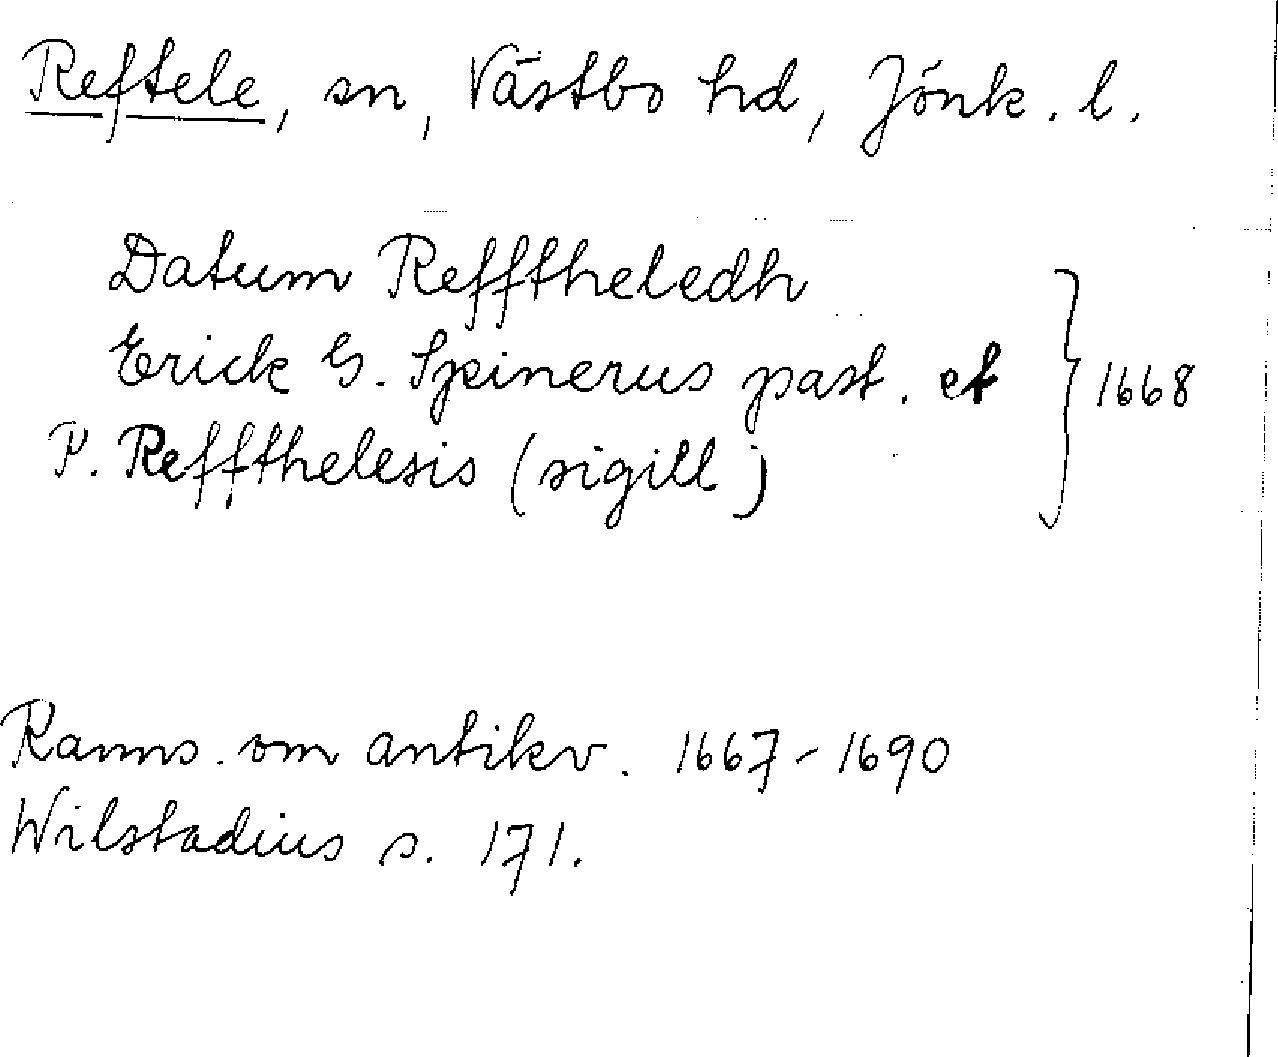 Reftele, sn, Västbo hd, Jönk. l.
Datum Refftheledh
Erick G. Spinerus past. et } 1668
P. Reffthelesis (sigill)
Ranns. om antikv. 1667-1690
Wilstadius s. 171.